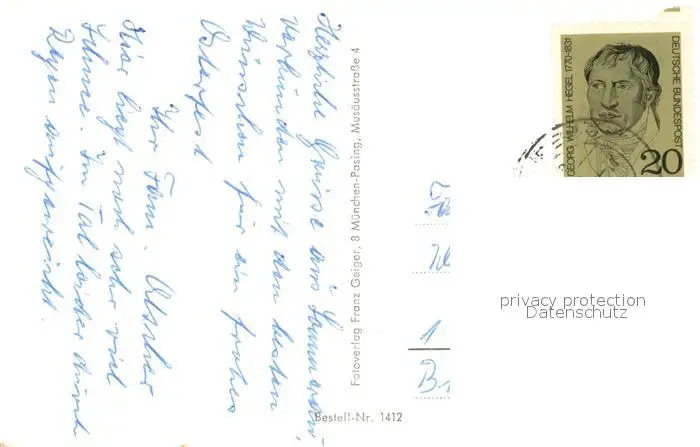 Herzliche Grüsse aus
verbunden mit den besten
Wünschen für ein frohes
Osterfest
Ihre Fam.
Hier liegt noch sehr viel
Schnee. Im Tal leider durch
Regen aufgeweicht.
Fotoverlag Franz Geiger, 8 München-Pasing, Musäusstraße 4
Bestell-Nr. 1412
GEORG WILHELM HEGEL 1770-1831
DEUTSCHE BUNDESPOST
20
1
privacy protection
Datenschutz